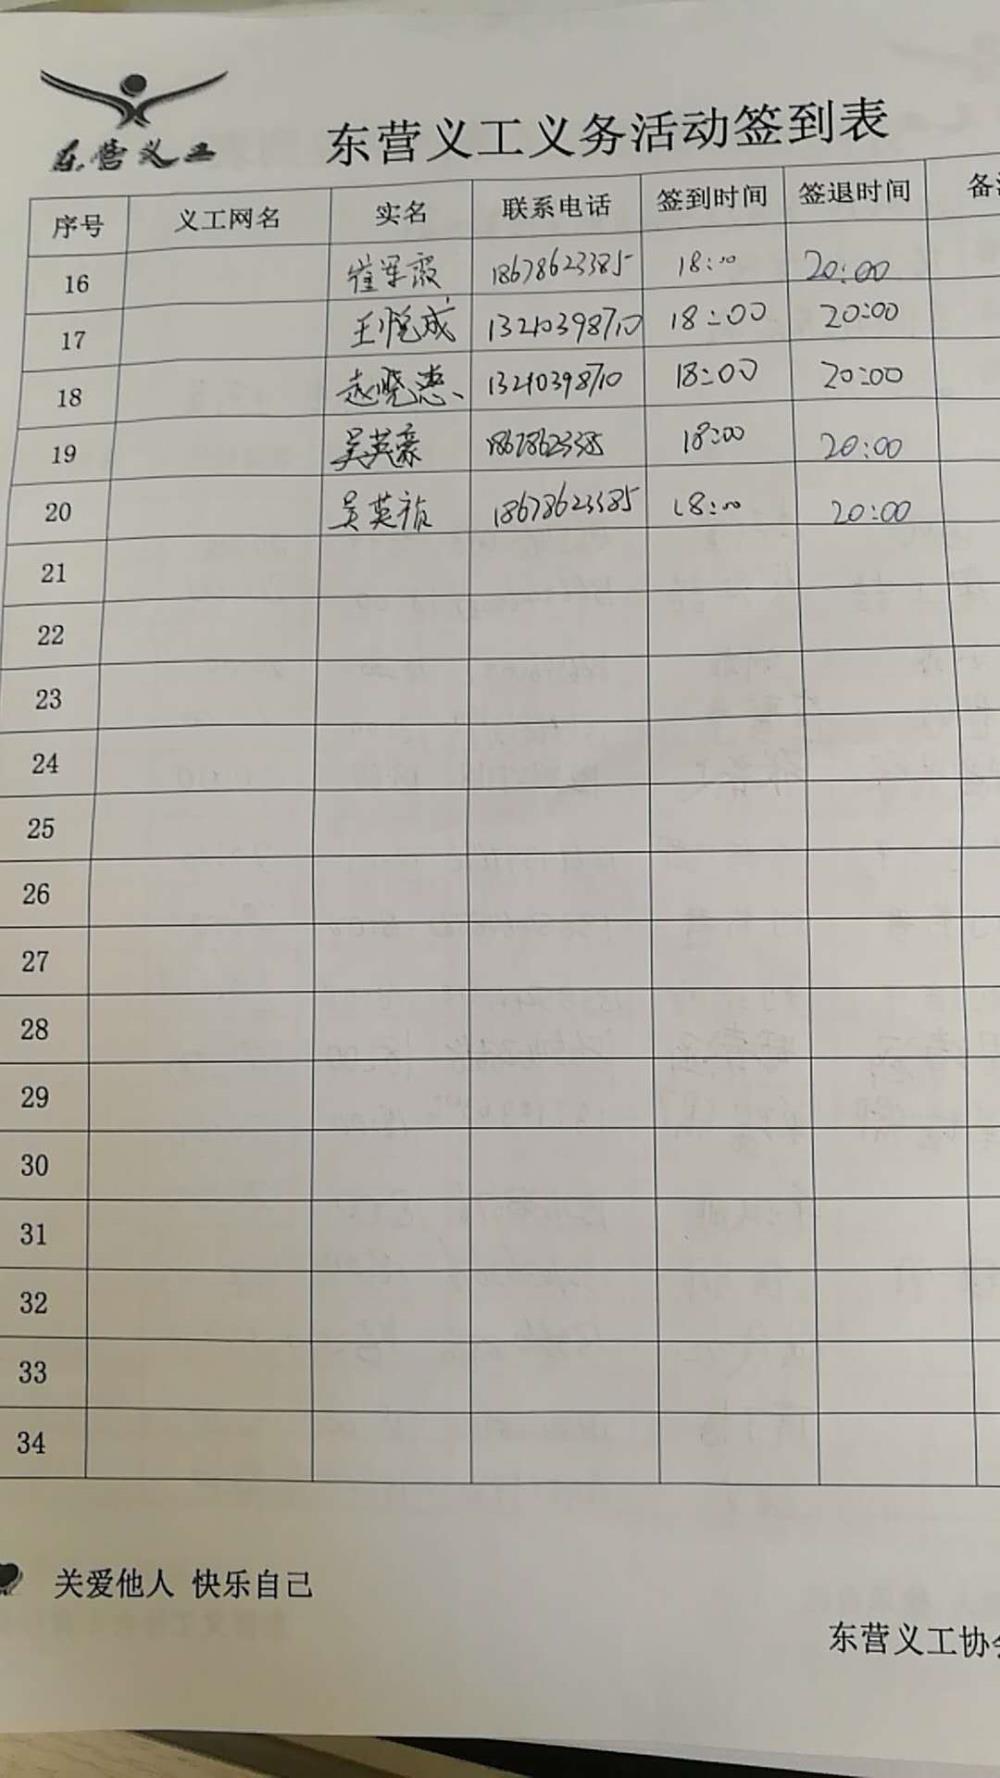 东营义工
东营义工义务活动签到表
序号 义工网名 实名 联系电话 签到时间 签退时间 备
16 崔军霞 18678623385 18:00 20:00
17 王悦成 13210398710 18:00 20:00
18 赵晓惠 13210398710 18:00 20:00
19 吴英豪 18678623385 18:00 20:00
20 吴英祯 18678623385 18:00 20:00
21
22
23
24
25
26
27
28
29
30
31
32
33
34
关爱他人 快乐自己
东营义工协会